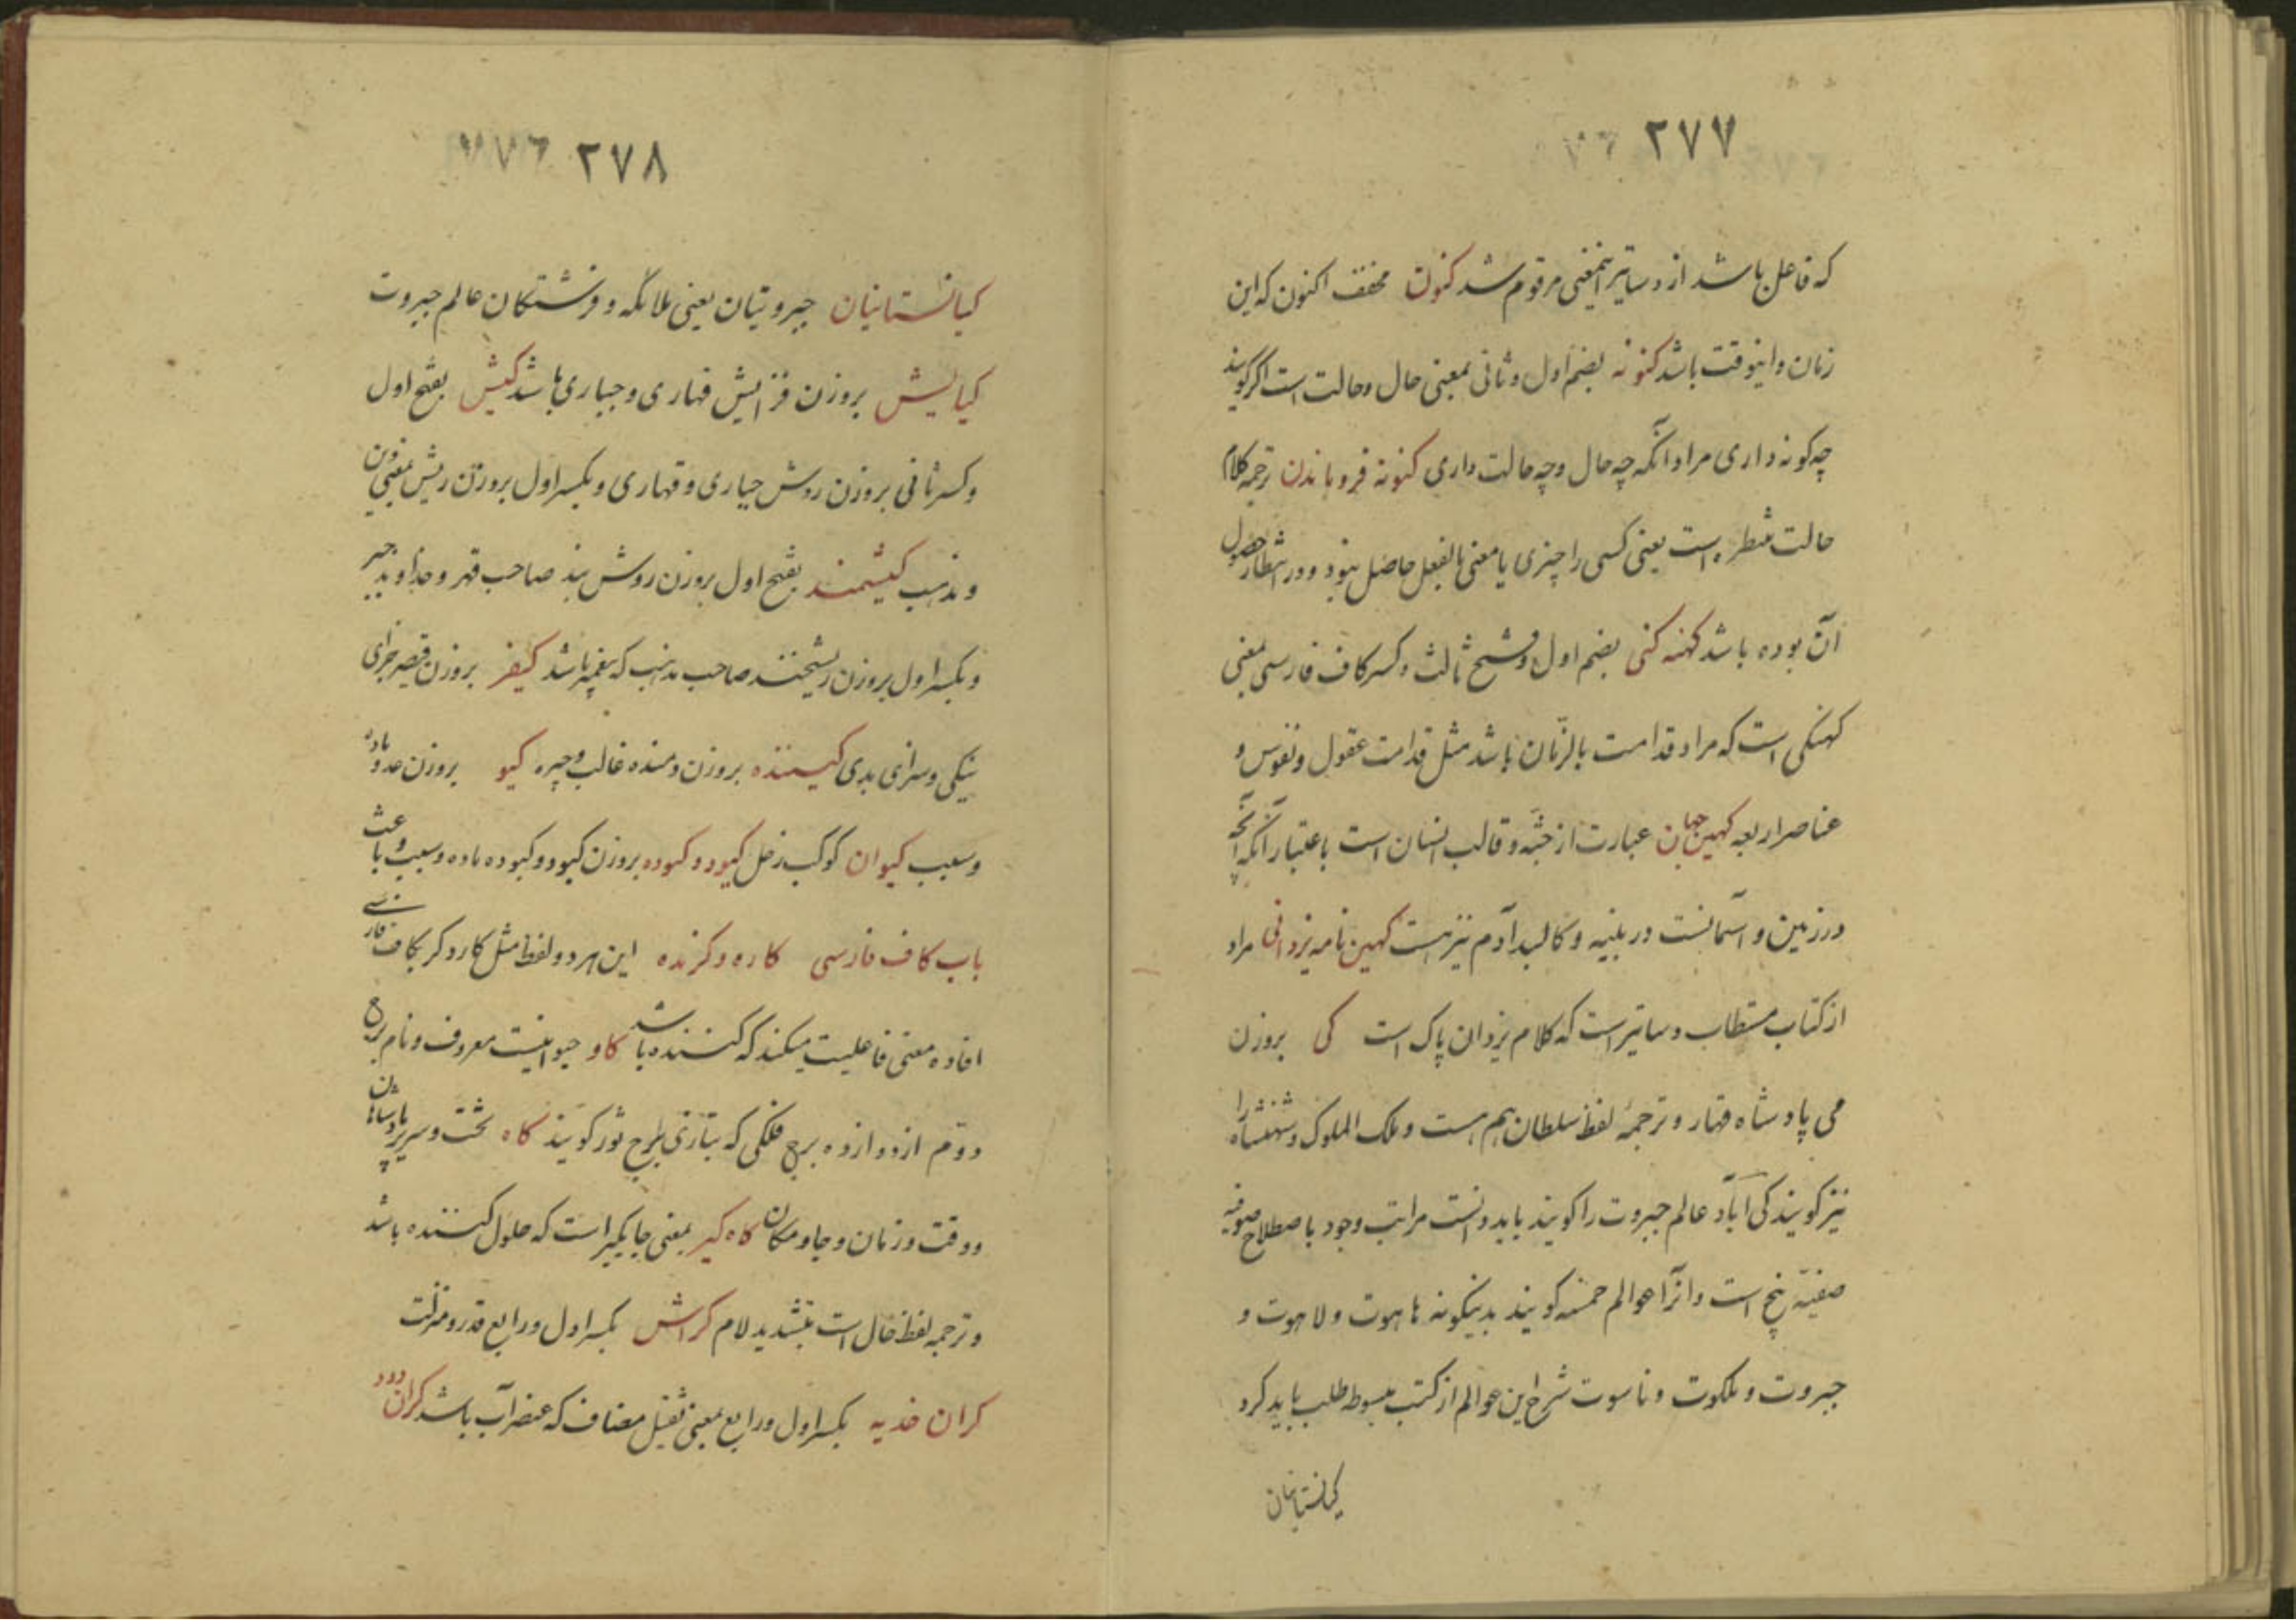 ۲۷۷
که فاعل باشد از دساتیر اینمعنی مرقوم شد کنون مخفف اکنون که این
زمان و اینوقت باشد کنونه بضم اول و ثانی بمعنی حال و حالت است اگر گویند
چه کونه داری مراد آنکه چه حال و چه حالت داری کنونه فروماندن ترجمه کلام
حالت منتظره است یعنی کسی را چیزی یا معنی بالفعل حاصل نبود و در انتظار حصول
آن بوده باشد کهنه کنی بضم اول و فتح ثالث و کسر کاف فارسی بمعنی
کهنکی است که مراد قدامت بالزمان باشد مثل قدامت عقول و نفوس و
عناصر اربعه کهین جهان عبارت از جثه و قالب انسان است باعتبار آنکه آنچه
در زمین و آسمانست در بنیه و کالبد آدم نیز هست کهین نامه یزدانی مراد
از کتاب مستطاب دساتیر است که کلام یزدان پاک است کی بروزن
می پادشاه قهار و ترجمهٔ لفظ سلطان هم هست و ملک الملوک و شهنشاه را
نیز کویند کی آباد عالم جبروت را کویند باید دانست مراتب وجود باصطلاح صوفیه
صفیّه پنج است و انرا عوالم خمسه کویند بدینکونه هاهوت و لاهوت و
جبروت و ملکوت و ناسوت شرح این عوالم از کتب مبسوطه طلب باید کرد
کیانستانیان
۲۷۸
کیانستانیان جبروتیان یعنی ملائکه و فرشتکان عالم جبروت
کیایش بروزن فزایش قهاری و جباری باشد کیش بفتح اول
و کسر ثانی بروزن روش جباری و قهاری و بکسر اول بروزن ریش بمعنی دین
و مذهب کیشمند بفتح اول بروزن روش بند صاحب قهر و خداوند جبر
و بکسر اول بروزن ریشخند صاحب مذهب که پیغمبر باشد کیفر بروزن قیصر جزای
نیکی و سزای بدی کیمنده بروزن دمنده غالب و چیره کیو بروزن عدو ماده
و سبب کیوان کوکب زحل کیود و کیوده بروزن کبود و کبوده ماده و سبب و باعث
باب کاف فارسی کاره و کرنده این هر دو لفظ مثل کار و کر بکاف فارسی
افاده معنی فاعلیت میکند که کننده باشد کاو حیوانیست معروف و نام برج
دوم از دوازده برج فلکی که بتازی برج ثور کویند کاه تخت و سریر پادشاهان
و وقت و زمان و جا و مکان کاه کیر بمعنی جایکیر است که حلول کننده باشد
و ترجمه لفظ حال است بتشدید لام کرانش بکسر اول و رابع قدر و منزلت
کران خدیه بکسر اول و رابع بمعنی ثقیل مضاف که عنصر آب باشد کران دود